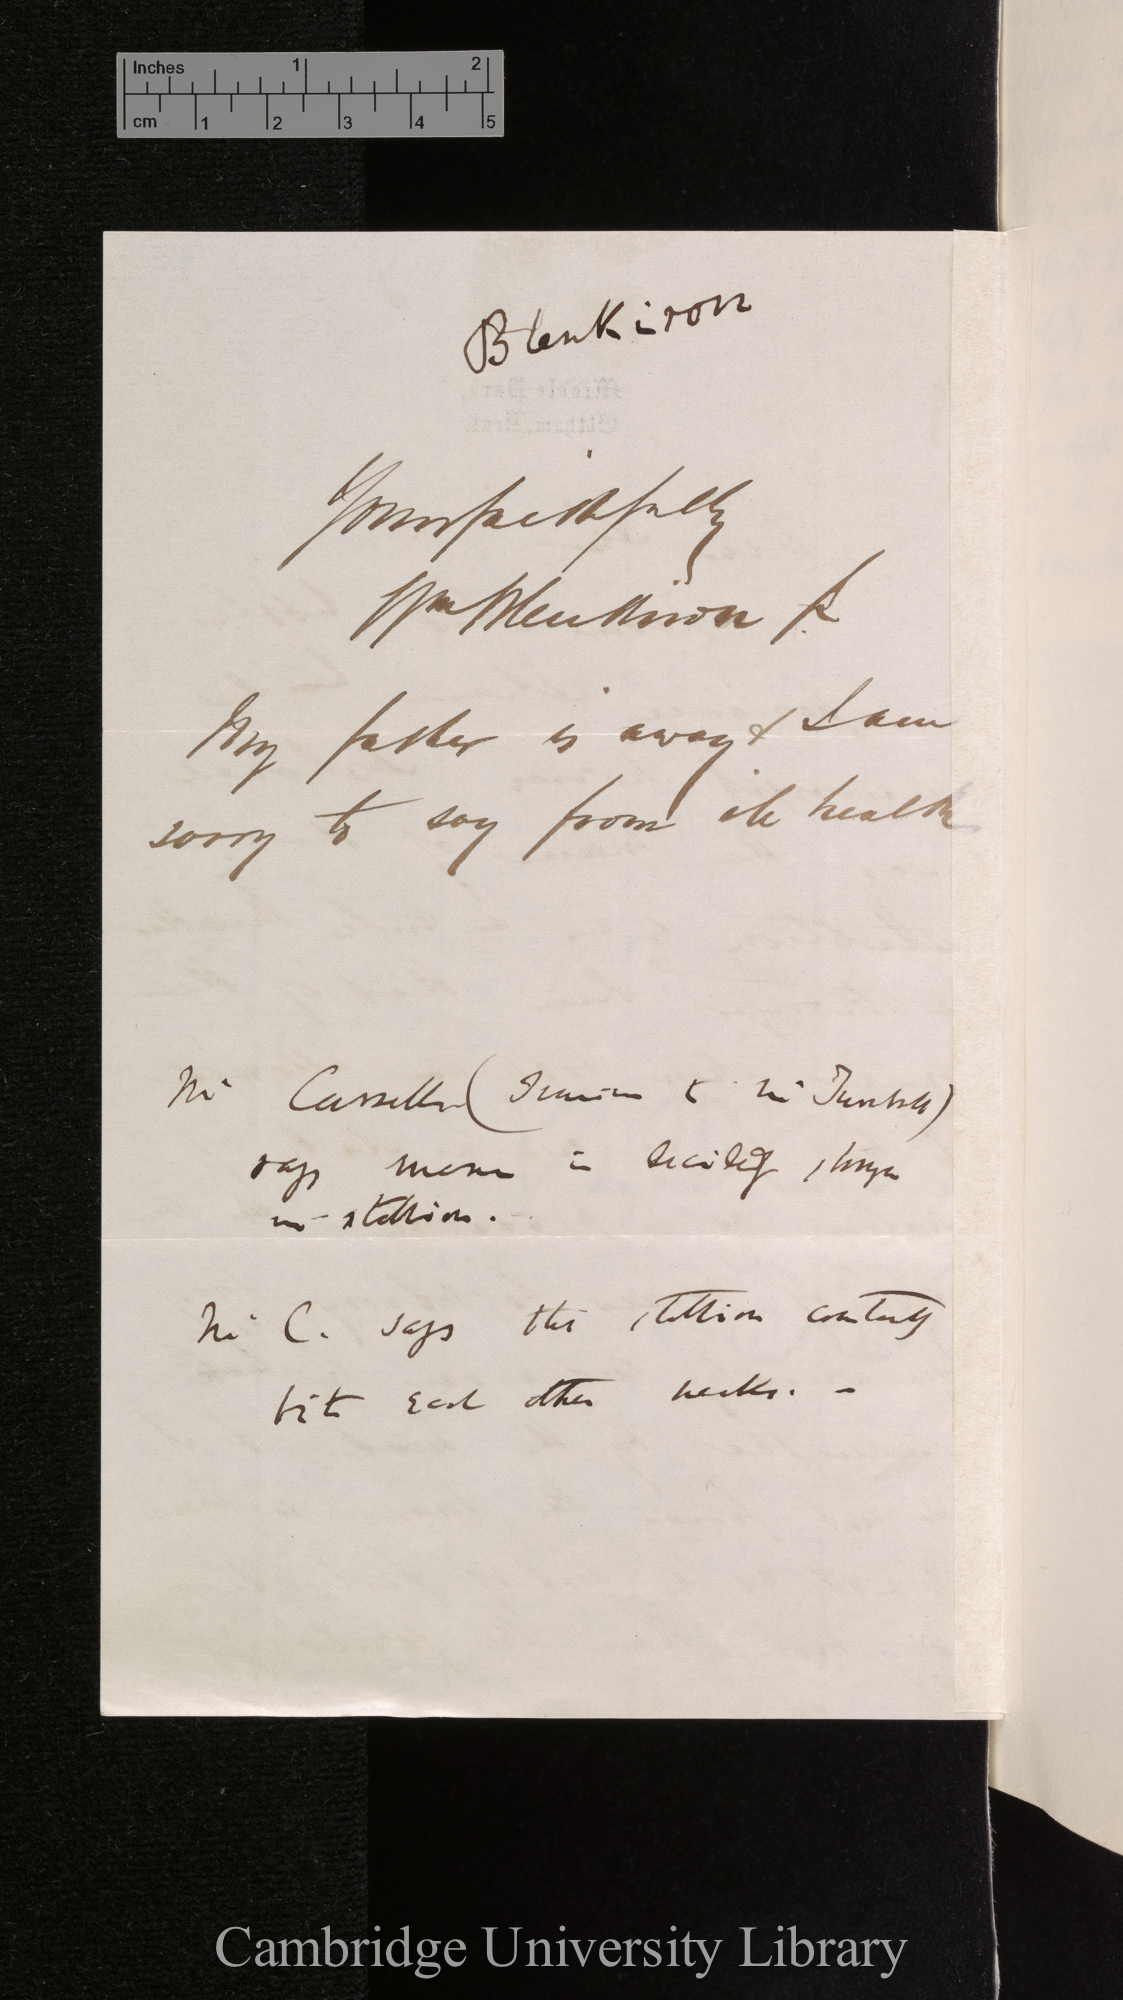 Inches 1 2
cm 1 2 3 4 5
Blenkiron
Yours faithfully
Wm Blenkiron Jr
My father is away & I am
sorry to say from ill health
Mr (to Mr
says mane is decidedly longer
in stallion.
Mr C. says the stallion constantly
bite each other necks. –
Cambridge University Library